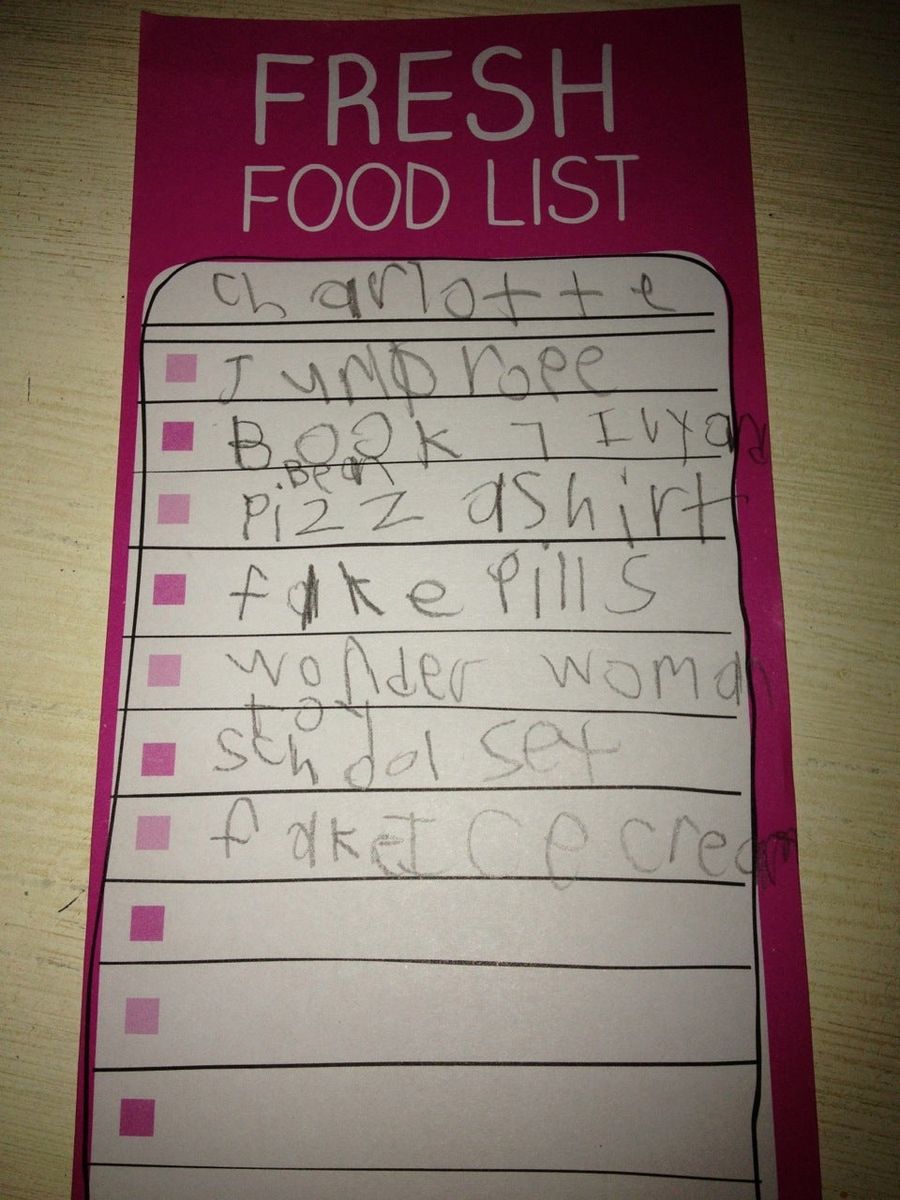 FRESH
FOOD LIST
Charlotte
Jump rope
Book 7 Ivy and
Bean
Pizza shirt
fake pills
wonder woman
toy
school set
fake Ice cream